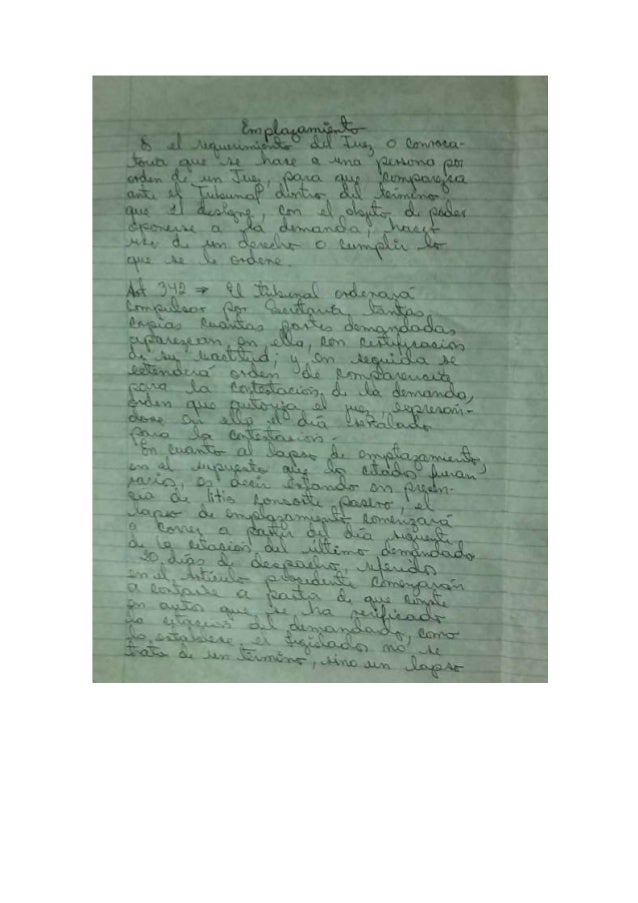 Emplazamiento
Es el requerimiento del Juez o convoca-
toria que se hace a una persona por
orden de un Juez, para que comparezca
ante el Tribunal dentro del término
que él designe, con el objeto de poder
oponerse a la demanda, hacer
uso de un derecho o cumplir lo
que se le ordene.
Art 342 → El tribunal ordenará
compulsar por Secretaría tantas
copias cuantas partes demandadas
aparezcan en ella, con certificación
de su exactitud; y en seguida se
extenderá orden de comparecencia
para la contestación de la demanda,
orden que autoriza el juez, expresan-
dose en ella el día señalado
para la contestación.
En cuanto al lapso de emplazamiento,
en el supuesto que los citados fueran
varios, es decir estando en presen-
cia de litis consorte pasivo, el
lapso de emplazamiento comenzará
a correr a partir del día siguiente
de la citación del último demandado
20 días de despacho, referidos
en el artículo precedente comenzarán
a contarse a partir de que conste
en autos que se ha verificado
la citación del demandado, como
lo establece el legislador no se
trata de un término, sino un lapso